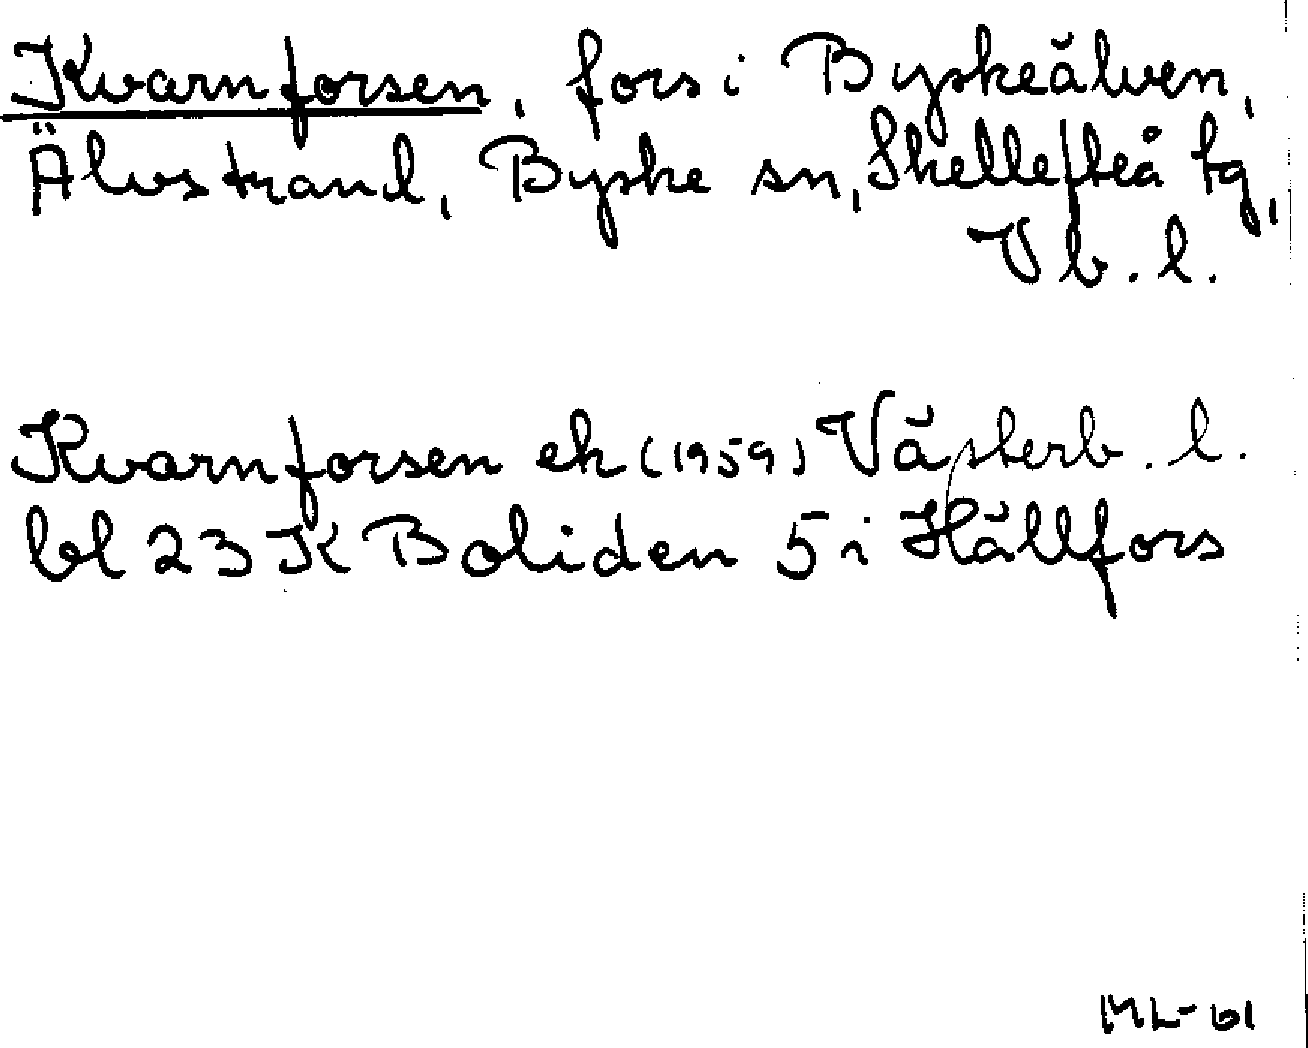 Kvarnforsen, fors i Byskeälven,
Älvstrand, Byske sn, Skellefteå tg,
Vb. l.
Kvarnforsen ek (1959) Västerb. l.
bl 23 K Boliden 5 i Hällfors
ML-61